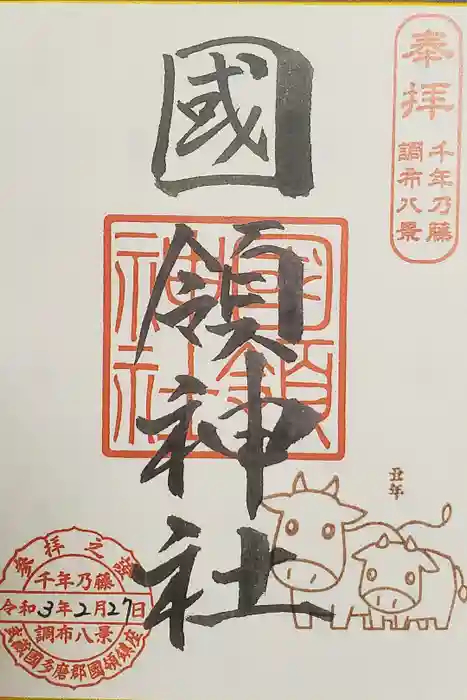 奉拝
千年乃藤
調布八景
國領神社
國領
神社
丑年
参拝之證
千年乃藤
令和3年2月27日
調布八景
武蔵國多磨郡國領鎮座